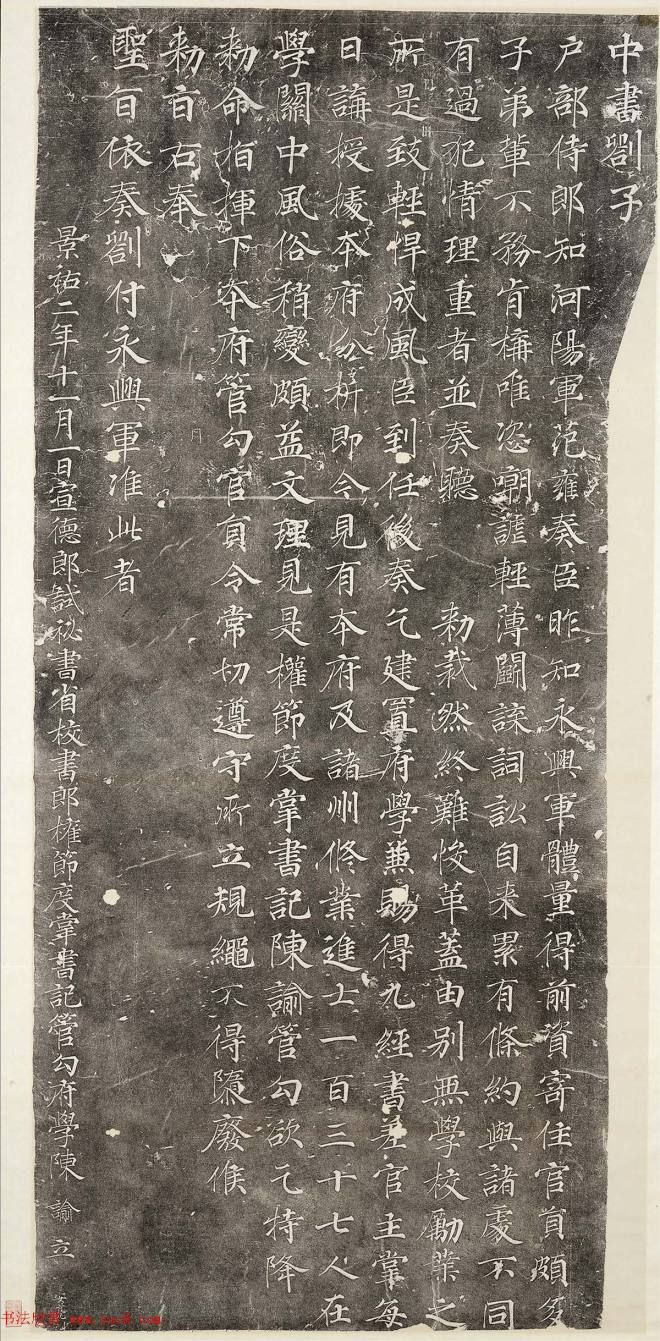 中書劄子
戶部侍郎知河陽軍范雍奏臣昨知永興軍體量得前資寄住官員頗多
子弟輩不務肯構唯恣嘲謔輕薄鬬諜詞訟自来累有條約與諸處不同
有過犯情理重者並奏聽 勑裁然終難悛革蓋由别無學校勵業之
所是致輕悍成風臣到任後奏乞建置府學兼賜得九經書差官主掌每
日講授據本府分析即今見有本府及諸州修業進士一百三十七人在
學關中風俗稍變頗益文理見是權節度掌書記陳諭管勾欲乞特降
勑命指揮下本府管勾官員令常切遵守所立規繩不得隳廢候
勑旨右奉
聖旨依奏劄付永興軍准此者
景祐二年十一月一日宣德郎試祕書省校書郎權節度掌書記管勾府學陳諭立
书法欣赏 www.yac8.com